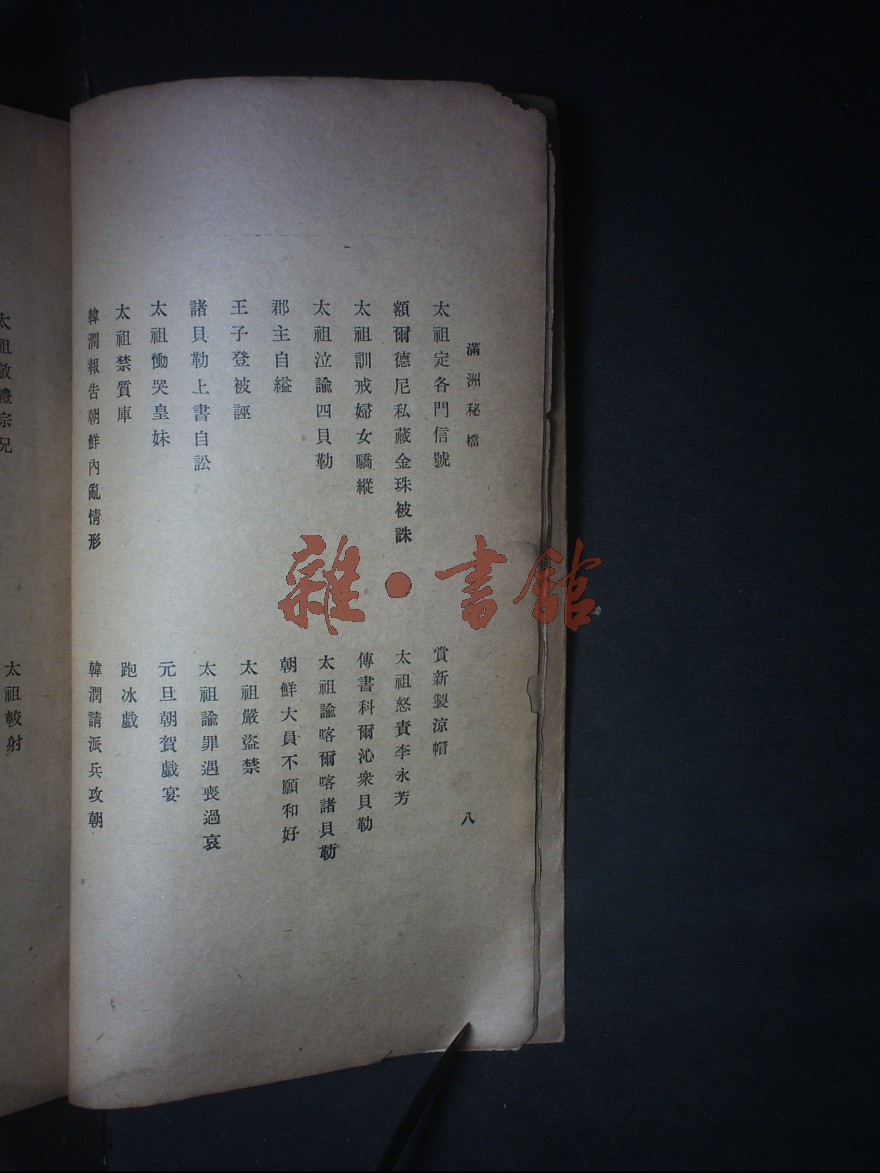 滿洲秘檔
八
太祖定各門信號
賞新製涼帽
額爾德尼私藏金珠被誅
太祖怒責李永芳
太祖訓戒婦女驕縱
傳書科爾沁衆貝勒
太祖泣諭四貝勒
太祖諭喀爾喀諸貝勒
郡主自縊
朝鮮大員不願和好
王子登被誣
太祖嚴盜禁
諸貝勒上書自訟
太祖諭罪遇喪過哀
太祖慟哭皇妹
元旦朝賀戲宴
太祖禁質庫
跑冰戲
韓潤報告朝鮮內亂情形
韓潤請派兵攻朝
太祖敬禮宗兄
太祖較射
雜·書館